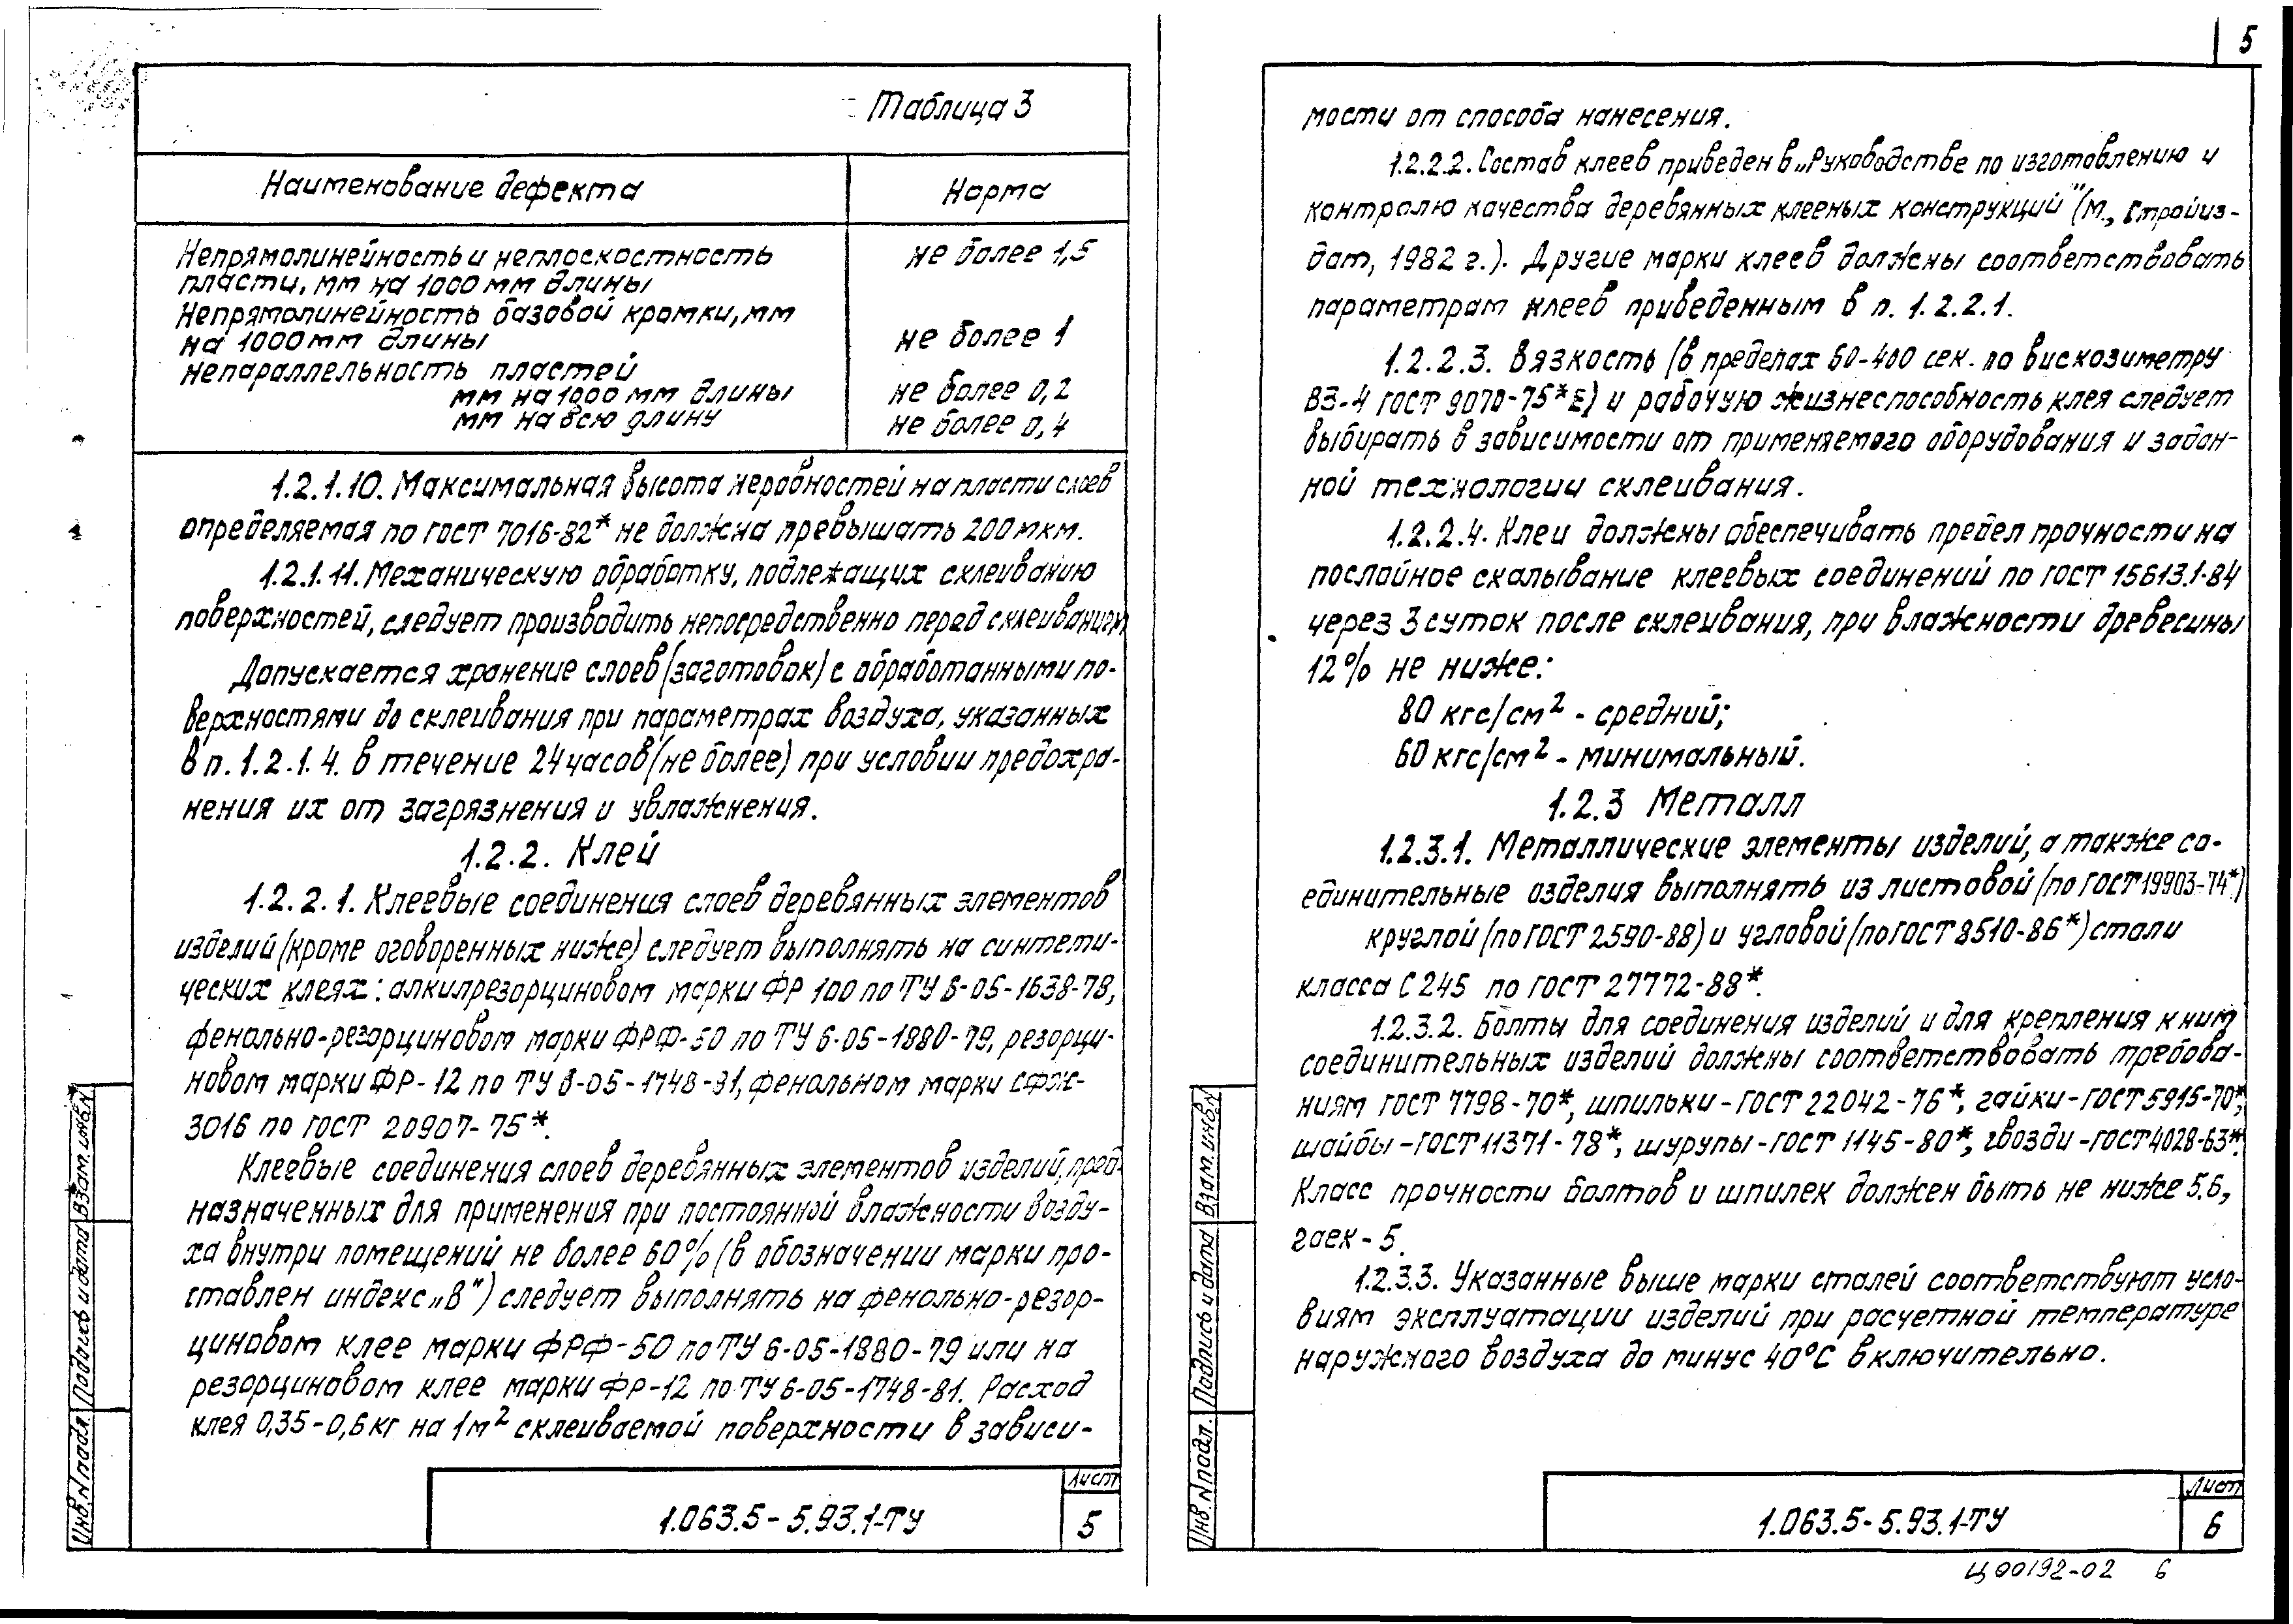 Таблица 3
Наименование дефекта
Норма
Непрямолинейность и неплоскостность
пласти, мм на 1000 мм длины
не более 1,5
Непрямолинейность базовой кромки, мм
на 1000 мм длины
не более 1
Непараллельность пластей
мм на 1000 мм длины
не более 0,2
мм на всю длину
не более 0,4
1.2.1.10. Максимальная высота неровностей на пласти слоев
определяемая по ГОСТ 7016-82* не должна превышать 200 мкм.
1.2.1.11. Механическую обработку, подлежащих склеиванию
поверхностей, следует производить непосредственно перед склеиванием
Допускается хранение слоев (заготовок) с обработанными по-
верхностями до склеивания при параметрах воздуха, указанных
в п. 1.2.1.4. в течение 24 часов (не более) при условии предохра-
нения их от загрязнения и увлажнения.
1.2.2. Клей
1.2.2.1. Клеевые соединения слоев деревянных элементов
изделий (кроме оговоренных ниже) следует выполнять на синтети-
ческих клеях: алкилрезорциновом марки ФР 100 по ТУ 6-05-1638-78,
фенольно-резорциновом марки ФРФ-50 по ТУ 6-05-1880-79, резорци-
новом марки ФР-12 по ТУ 6-05-1748-81, фенольном марки СФЖ-
3016 по ГОСТ 20907-75*.
Клеевые соединения слоев деревянных элементов изделий, пред-
назначенных для применения при постоянной влажности возду-
ха внутри помещений не более 60% (в обозначении марки про-
ставлен индекс „В") следует выполнять на фенольно-резор-
циновом клее марки ФРФ-50 по ТУ 6-05-1880-79 или на
резорциновом клее марки ФР-12 по ТУ 6-05-1748-81. Расход
клея 0,35-0,6 кг на 1 м² склеиваемой поверхности в зависи-
Инв. N подл. Подпись и дата Взам. инв. N
1.063.5-5.93.1-ТУ
Лист
5
5
мости от способа нанесения.
1.2.2.2. Состав клеев приведен в „Руководстве по изготовлению и
контролю качества деревянных клееных конструкций" (М., Стройиз-
дат, 1982 г.). Другие марки клеев должны соответствовать
параметрам клеев приведенным в п. 1.2.2.1.
1.2.2.3. Вязкость (в пределах 60-400 сек. по вискозиметру
ВЗ-4 ГОСТ 9070-75*Е) и рабочую жизнеспособность клея следует
выбирать в зависимости от применяемого оборудования и задан-
ной технологии склеивания.
1.2.2.4. Клеи должны обеспечивать предел прочности на
послойное скалывание клеевых соединений по ГОСТ 15613.1-84
через 3 суток после склеивания, при влажности древесины
12% не ниже:
80 кгс/см² - средний;
60 кгс/см² - минимальный.
1.2.3 Металл
1.2.3.1. Металлические элементы изделий, а также со-
единительные изделия выполнять из листовой (по ГОСТ 19903-74*)
круглой (по ГОСТ 2590-88) и угловой (по ГОСТ 8510-86*) стали
класса С 245 по ГОСТ 27772-88*.
1.2.3.2. Болты для соединения изделий и для крепления к ним
соединительных изделий должны соответствовать требова-
ниям ГОСТ 7798-70*, шпильки - ГОСТ 22042-76*, гайки - ГОСТ 5915-70*,
шайбы - ГОСТ 11371-78*, шурупы - ГОСТ 1145-80*, гвозди - ГОСТ 4028-63*.
Класс прочности болтов и шпилек должен быть не ниже 5.6,
гаек - 5.
1.2.3.3. Указанные выше марки сталей соответствуют усло-
виям эксплуатации изделий при расчетной температуре
наружного воздуха до минус 40°С включительно.
Инв. N подл. Подпись и дата Взам. инв. N
1.063.5-5.93.1-ТУ
Лист
6
Ц00192-02 6